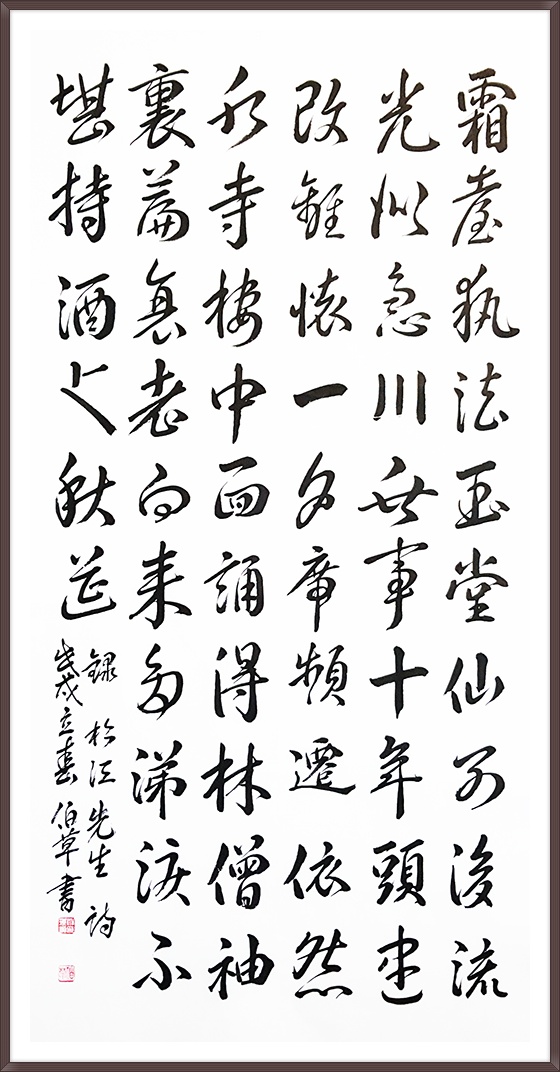 霜臺執法玉堂仙別後流
光似急川世事十年頭更
改離懷一夕席頻遷依然
水寺樓中面誦得林僧袖
裏篇衰老向來多涕淚不
堪持酒上秋筵
錄 松江先生 詩
戊戌立春 伯草書